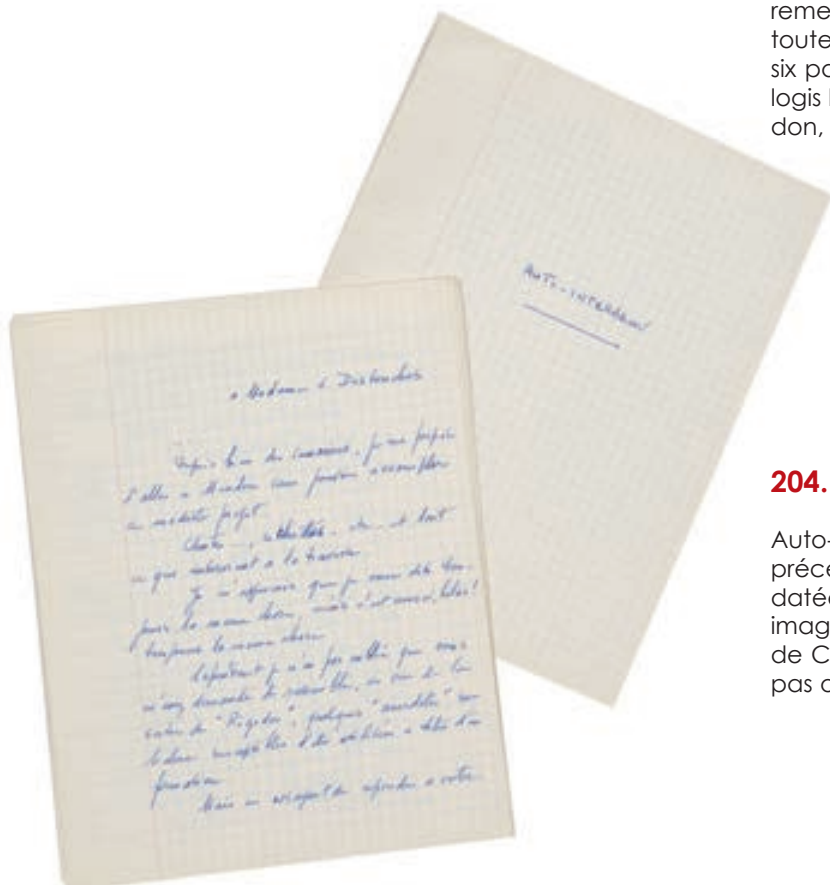 reme
toute
six pa
logis
don,
AUTO-INTERVIEW
à Madame L. Destouches
Depuis bien des semaines, je me propose
d'aller à Meudon sans pouvoir accomplir
ce modeste projet.
et tout
ce que intervient à la traverse.
Je m'aperçois que je vous dis tou-
jours la même chose, mais c'est aussi, hélas!
toujours la même chose.
Cependant je n'ai pas oublié que vous
m'avez demandé de rassembler, en vue de la
sortie de "Rigodon", quelques "anecdotes"
susceptibles d'être utilisées à titre d'in-
formation.
Mais en essayant de répondre à votre
204.
Auto-
précé
datée
imag
de C
pas a